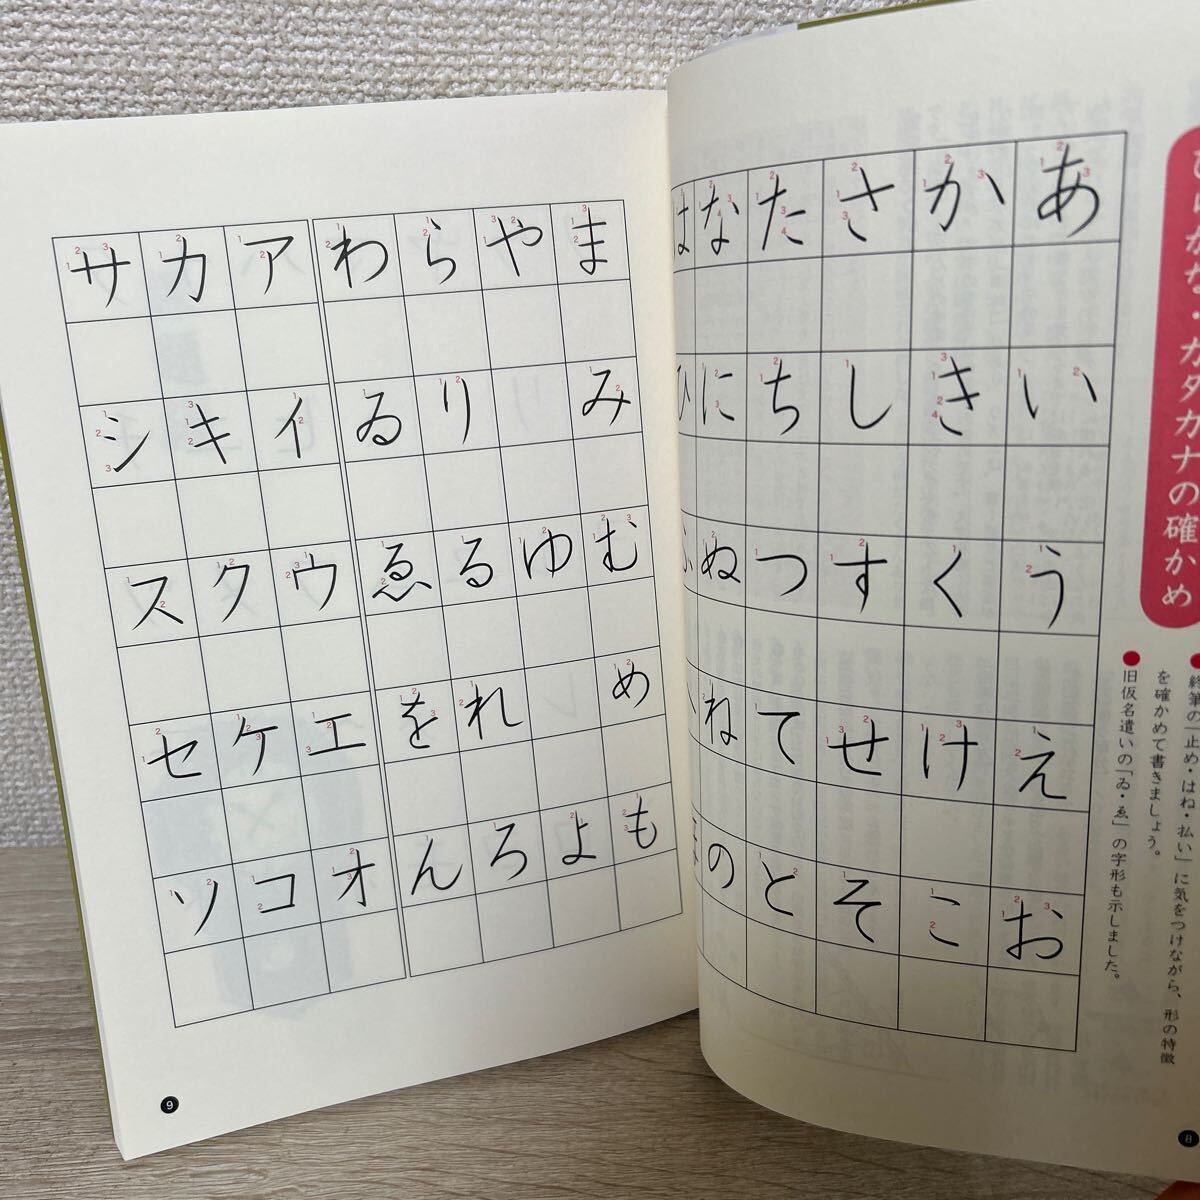 ひらがな・カタカナの確かめ
●終筆の「止め・はね・払い」に気をつけながら、形の特徴
を確かめて書きましょう。
●旧仮名遣いの「ゐ・ゑ」の字形も示しました。
あ い う え お
か き く け こ
さ し す せ そ
た ち つ て と
な に ぬ ね の
は ひ ふ へ ほ
8
ま み む め も
や ゆ よ
ら り る れ ろ
わ ゐ ゑ を ん
ア イ ウ エ オ
カ キ ク ケ コ
サ シ ス セ ソ
9